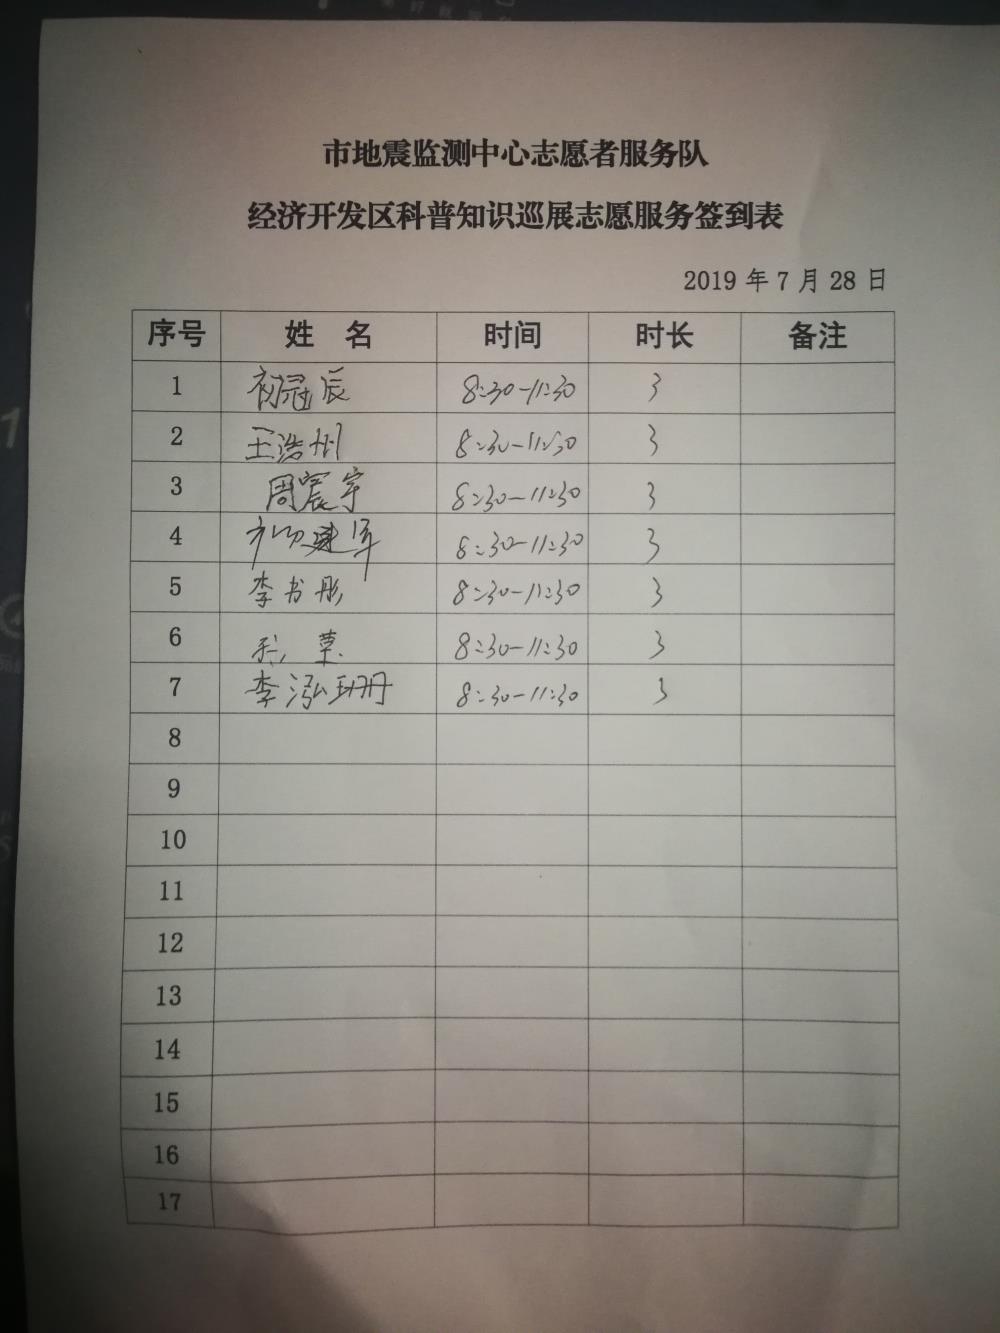 市地震监测中心志愿者服务队
经济开发区科普知识巡展志愿服务签到表
2019 年 7 月 28 日
序号 姓 名 时间 时长 备注
1 初冠辰 8:30-11:30 3
2 王浩州 8:30-11:30 3
3 周震宇 8:30-11:30 3
4 8:30-11:30 3
5 李书彤 8:30-11:30 3
6 8:30-11:30 3
7 李泓珊 8:30-11:30 3
8
9
10
11
12
13
14
15
16
17